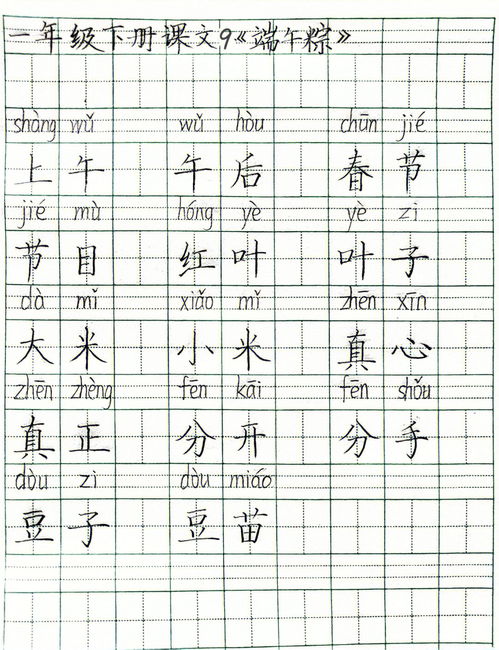 一年级下册课文9《端午粽》
shàng wǔ wǔ hòu chūn jié
上午 午后 春节
jié mù hóng yè yè zi
节目 红叶 叶子
dà mǐ xiǎo mǐ zhēn xīn
大米 小米 真心
zhēn zhèng fēn kāi fēn shǒu
真正 分开 分手
dòu zi dòu miáo
豆子 豆苗